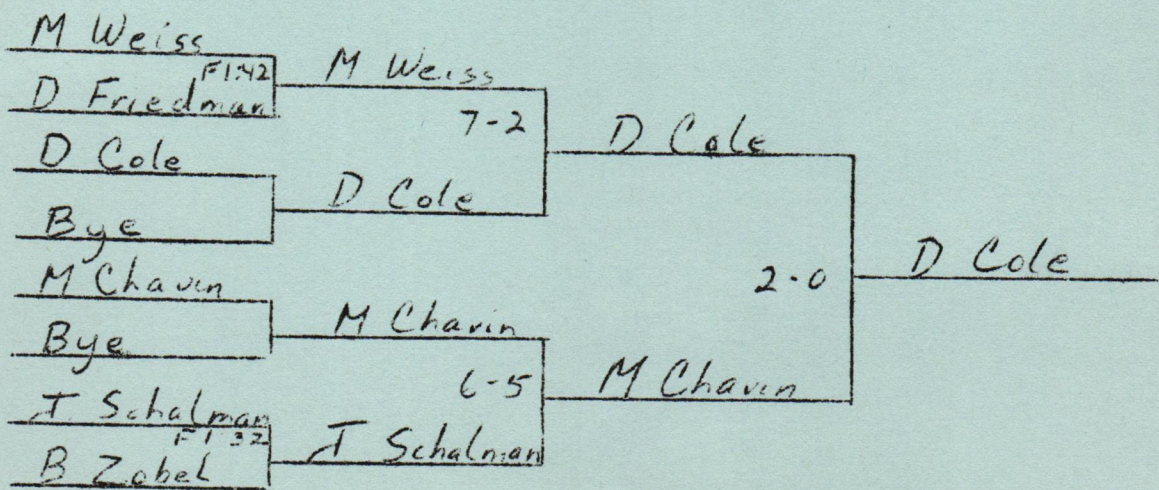 M Weiss
F1:42
D Friedman
D Cole
Bye
M Chavin
Bye
J Schalman
F1 32
B Zobel
M Weiss
7-2
D Cole
M Chavin
6-5
J Schalman
D Cole
2-0
M Chavin
D Cole